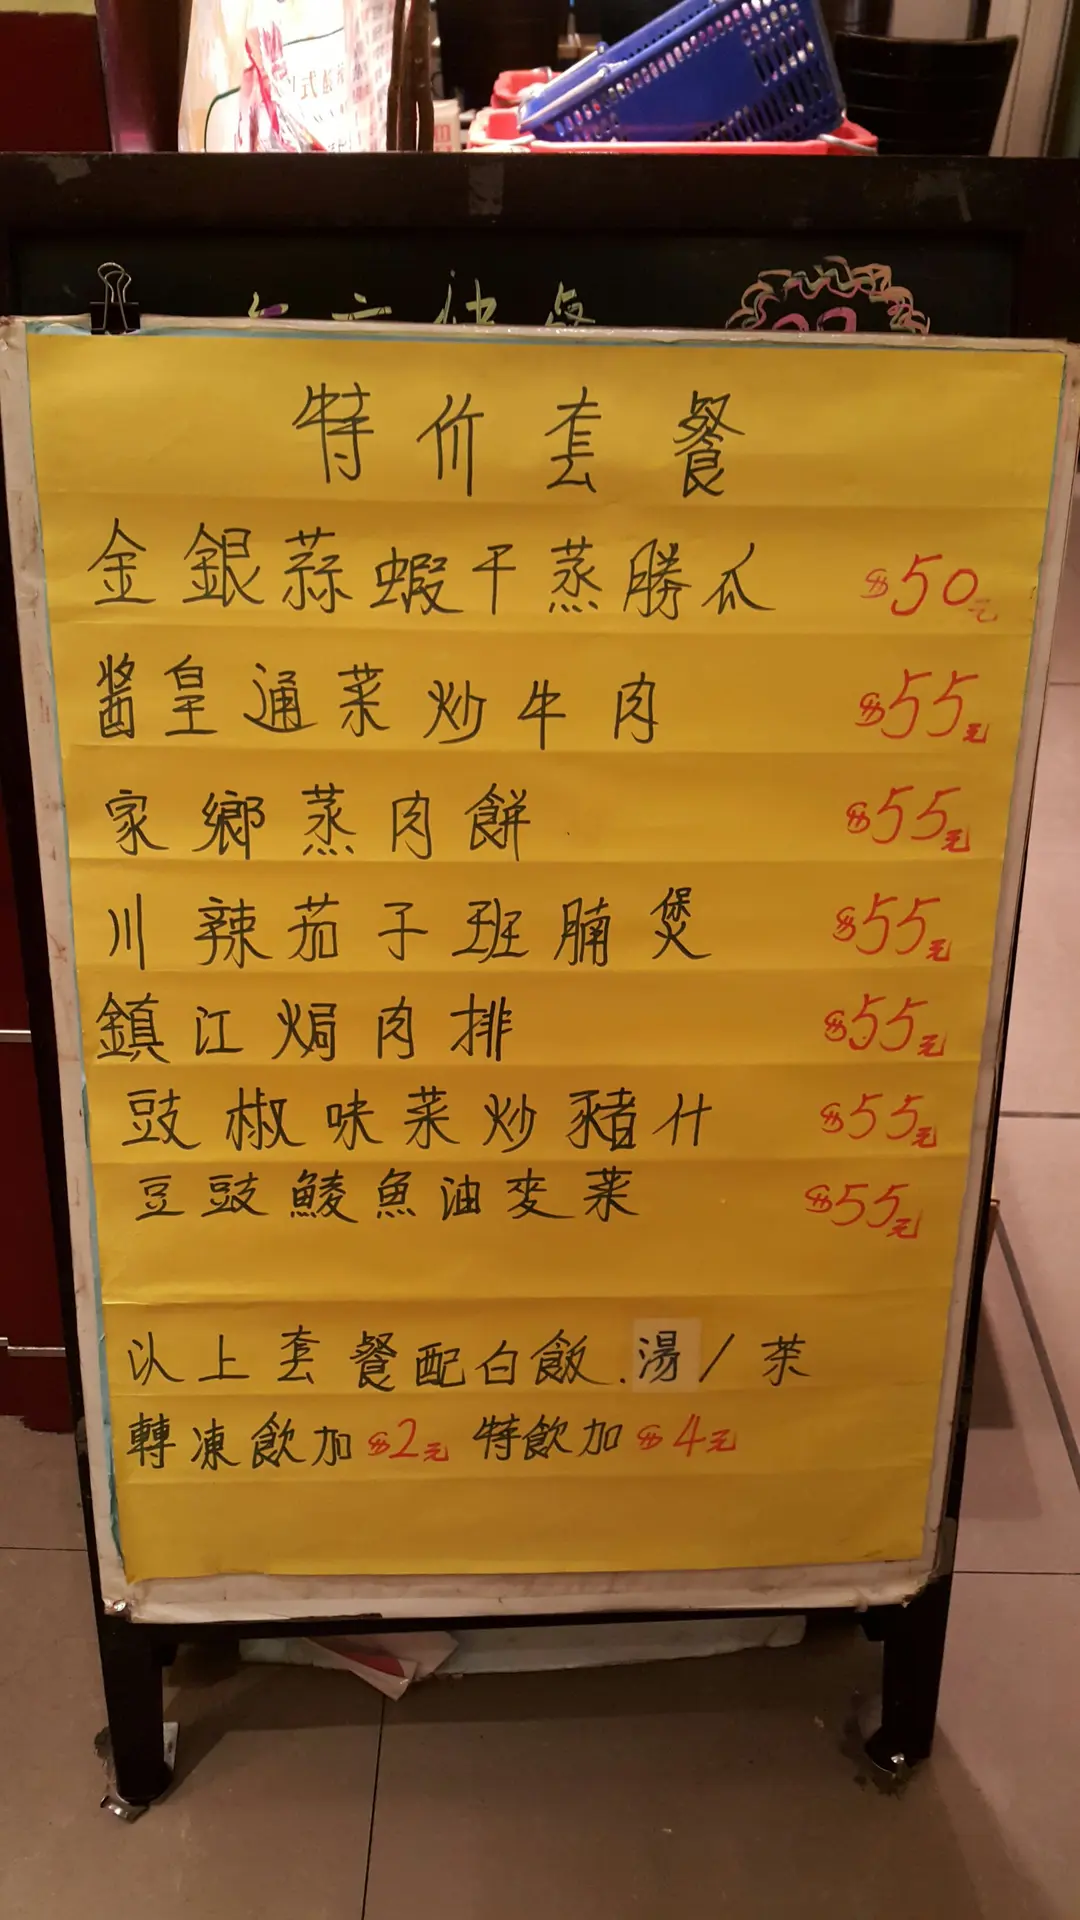 特价套餐
金銀蒜蝦干蒸勝瓜 $50元
醬皇通菜炒牛肉 $55元
家鄉蒸肉餅 $55元
川辣茄子班腩煲 $55元
鎮江焗肉排 $55元
豉椒味菜炒豬什 $55元
豆豉鯪魚油麥菜 $55元
以上套餐配白飯.湯/茶
轉凍飲加$2元 特飲加$4元